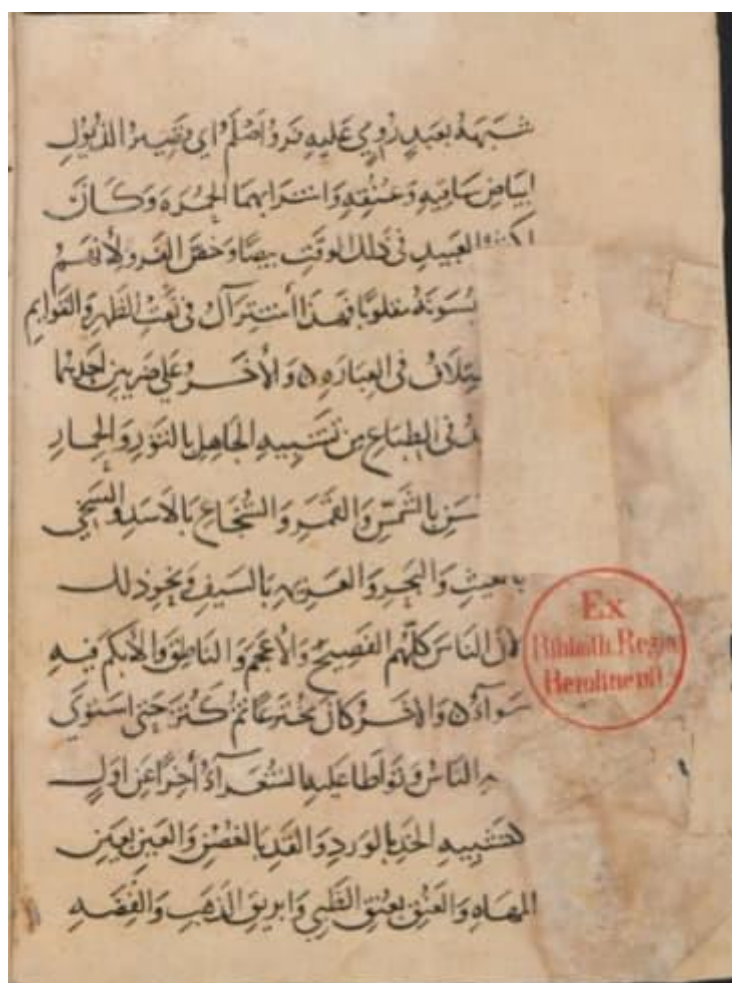 شبهه بعبد زوي عليه فرو اصلم اي قصير الذيول
لبياض ساقيه وعنقه وانترابهما الحمره وكان
العبيد في ذلك الوقت بيضا وخص الفرو لانهم
مقلوبا فهذا اشتراك في نعت الظهر والقوايم
في العباره ٥ والاخر على ضربين احدهما
في الطباع من تشبيه الجاهل بالثور والحمار
بالشمس والقمر والشجاع بالاسد والسخي
والبحر والعزيمه بالسيف ونحو ذلك
لان الناس كلهم الفصيح والاعجم والناطق والابكم فيه
سوآء ٥ والاخر كان مخترعا ثم كثر حتى استوي
الناس وتواطا عليه الشعرآء آخرا عن اول
كتشبيه الخد بالورد والقد بالغصن والعين بعين
المهاه والعنق بعنق الظبي وابريق الذهب والفضه
Ex
Biblioth. Regia
Berolinensi.